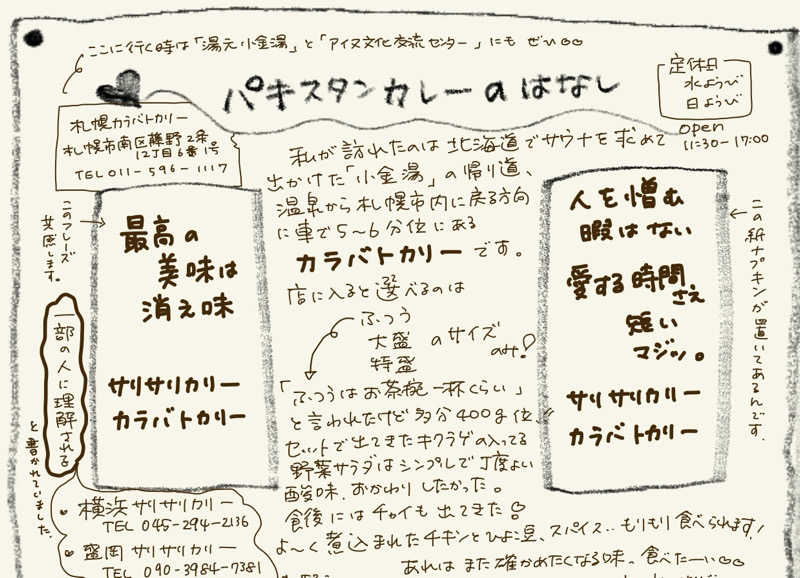 ここに行く時は「湯元小金湯」と「アイヌ文化交流センター」にも ぜひ
パキスタンカレーのはなし
定休日
水ようび
日ようび
open
11:30-17:00
札幌カラバトカリー
札幌市南区藤野2条
12丁目6番1号
TEL 011-596-1117
私が訪れたのは北海道でサウナを求めて
出かけた「小金湯」の帰り道、
温泉から札幌市内に戻る方向
に車で5〜6分位にある
カラバトカリーです。
店に入ると選べるのは
ふつう
大盛
特盛
のサイズ
のみ!
「ふつうはお茶碗一杯くらい」
と言われたけど多分400g位
セットで出てきたキクラゲの入ってる
野菜サラダはシンプルで丁度よい
酸味、おかわりしたかった。
食後にはチャイも出てきた!
よ〜く煮込まれたチキンとひよこ豆、スパイス..もりもり食べられます!
あれは また確かめたくなる味。食べたーい
このフレーズ
共感します。
最高の
美味は
消え味
サリサリカリー
カラバトカリー
一部の人に理解される
と書かれていました。
人を憎む
暇はない
愛する時間
さえ
短い
マジッ。
サリサリカリー
カラバトカリー
この紙ナプキンが置いてあるんです.
横浜サリサリカリー
TEL 045-294-2136
盛岡サリサリカリー
TEL 090-3984-7381